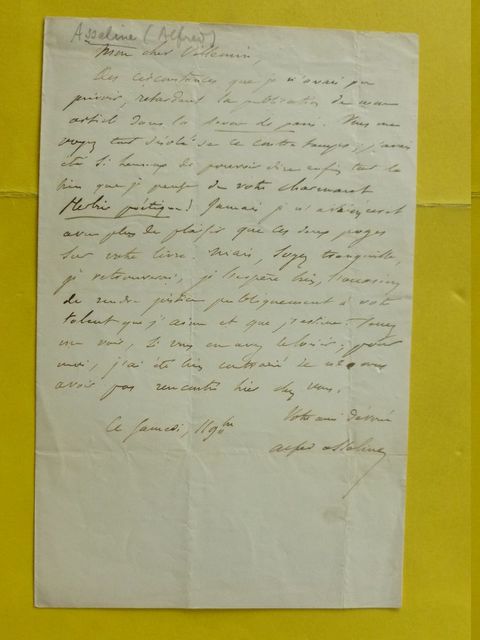 Asseline (Alfred)
Mon cher Villemin,
Des circonstances que je n'avais pu
prévoir, retardent la publication de mon
article dans la Revue de Paris. Vous me
voyez tout désolé de ce contre temps; j'avais
été si heureux de pouvoir dire enfin tout le
bien que je pense de votre charmant
Herbier poétique! Jamais je n'
avec plus de plaisir que ces deux pages
sur votre livre. Mais, soyez tranquille,
je retrouverai, je l'espère bien, l'occasion
de rendre justice publiquement à votre
talent que j'aime et que j'estime. Venez
me voir, si vous en avez le loisir; pour
moi, j'ai été bien contrarié de ne vous
avoir pas rencontré hier chez vous.
Votre ami dévoué
Ce Samedi, 11
alfred asseline